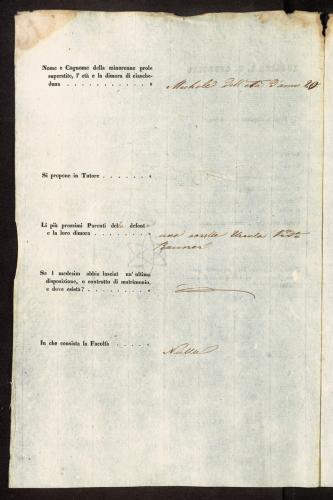 Nome e Cognome della minorenne prole
superstite, l' età e la dimora di ciasche-
duna . . . . . . . . . . . Michele dell' età d'anni 20
Si propone in Tutore . . . . . . .
Li più prossimi Parenti della defunta
e la loro dimora . . . . . . . una sorella Ursula
Se i medesimi abbia lasciat un' ultima
disposizione, o contratto di matrimonio,
e dove esista? . . . . . . . . .
In che consista la Facoltà . . . . . Nulla